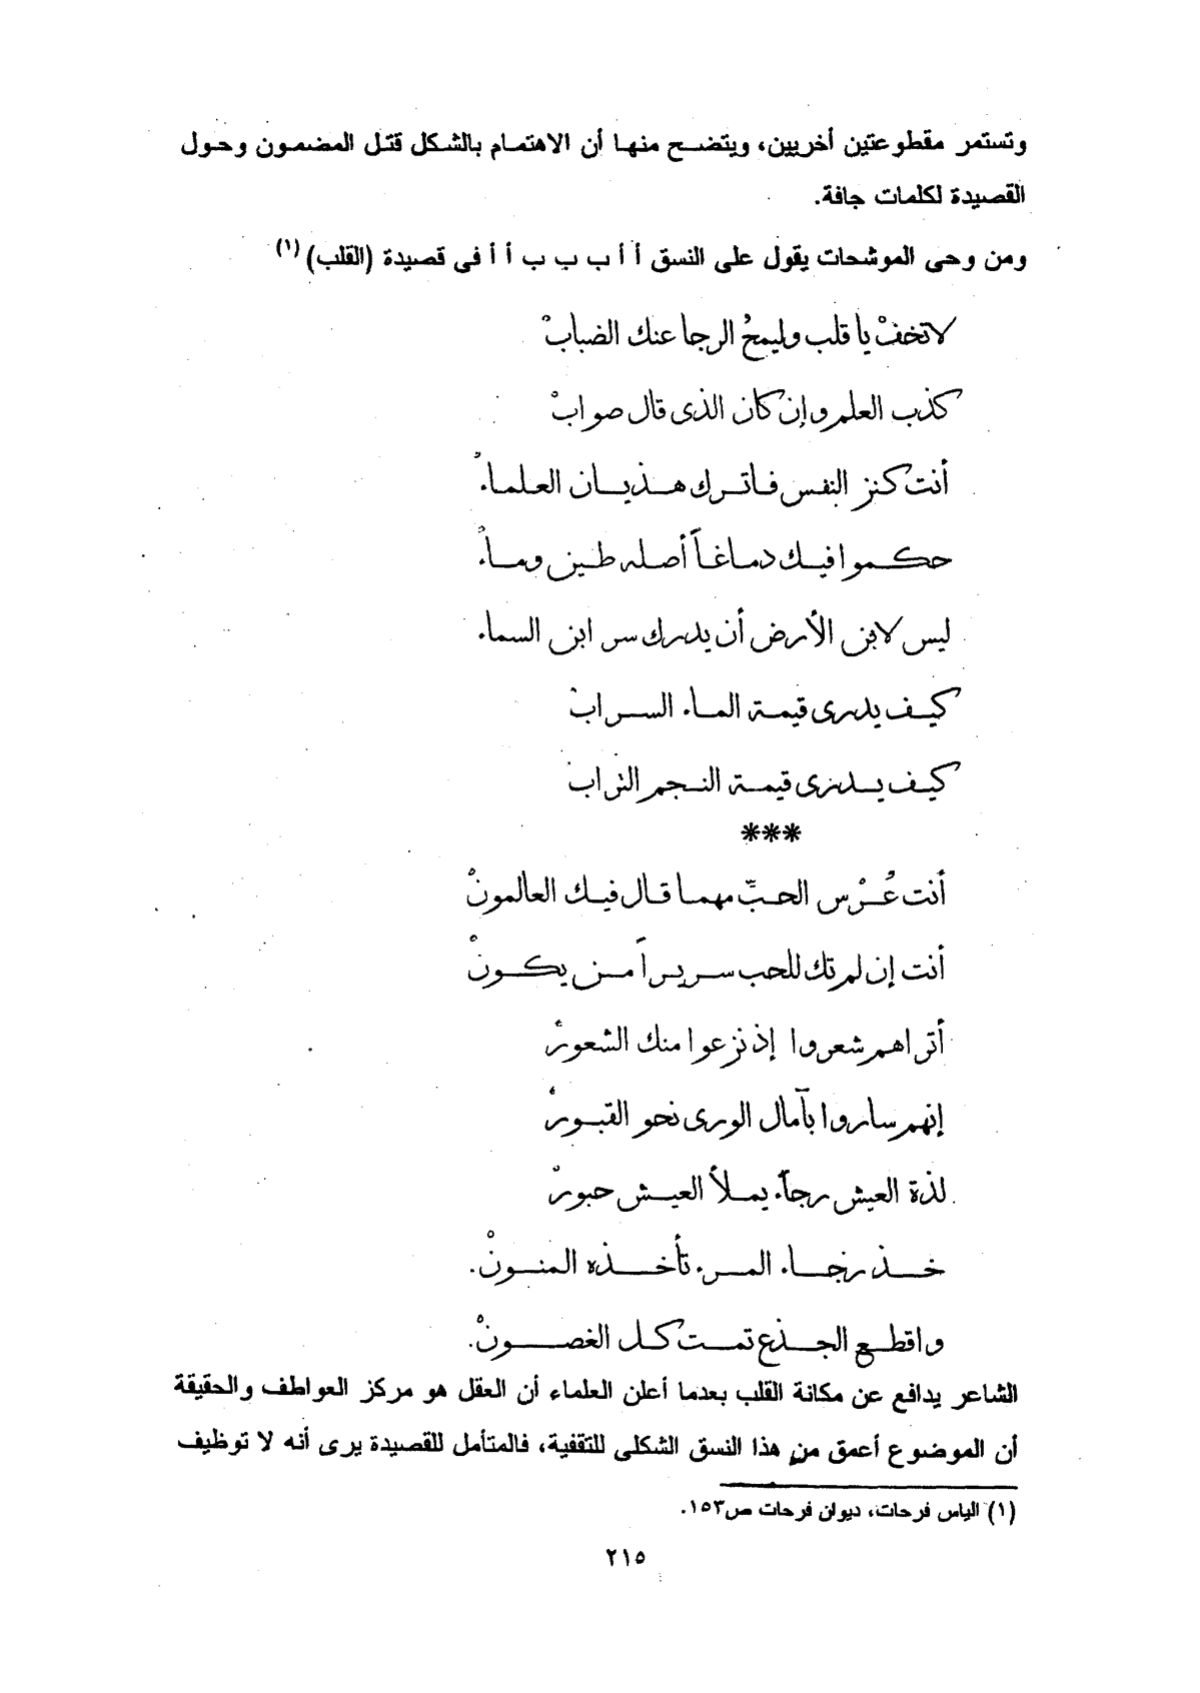 وتستمر مقطوعتين أخريين، ويتضح منها أن الاهتمام بالشكل قتل المضمون وحول
القصيدة لكلمات جافة.
ومن وحى الموشحات يقول على النسق أ أ ب ب ب أ أ فى قصيدة (القلب) (١)
لا تخفْ يا قلب وليمحُ الرجا عنك الضبابْ
كذب العلم وإن كان الذى قال صوابْ
أنت كنز النفس فاترك هذيان العلماءْ
حكموا فيك دماغاً أصله طين وماءْ
ليس لابن الأرض أن يدرك سر ابن السماء
كيف يدرى قيمة الماء السرابْ
كيف يدرى قيمة النجم الترابْ
***
أنت عُرْس الحبّ مهما قال فيك العالمونْ
أنت إن لم تك للحب سريراً من يكونْ
أتراهم شعروا إذ نزعوا منك الشعورْ
إنهم ساروا بآمال الورى نحو القبورْ
لذة العيش رجآء يملأ العيش حبورْ
خذ رجاء المرء تأخذه المنونْ.
واقطع الجذع تمت كل الغصونْ.
الشاعر يدافع عن مكانة القلب بعدما أعلن العلماء أن العقل هو مركز العواطف والحقيقة
أن الموضوع أعمق من هذا النسق الشكلى للتقفية، فالمتأمل للقصيدة يرى أنه لا توظيف
(١) الياس فرحات، ديوان فرحات ص١٥٣.
٢١٥